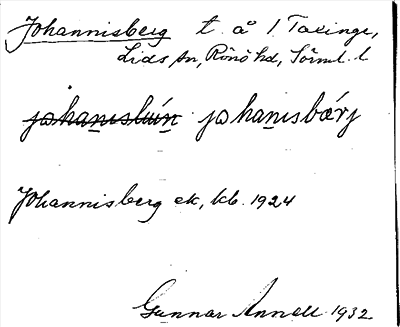 Johannisberg t. å 1 Taxinge,
Lids sn, Rönö hd, Sörml. l
johanisbærj
Johannisberg ek, kb. 1924
Gunnar Annell 1932